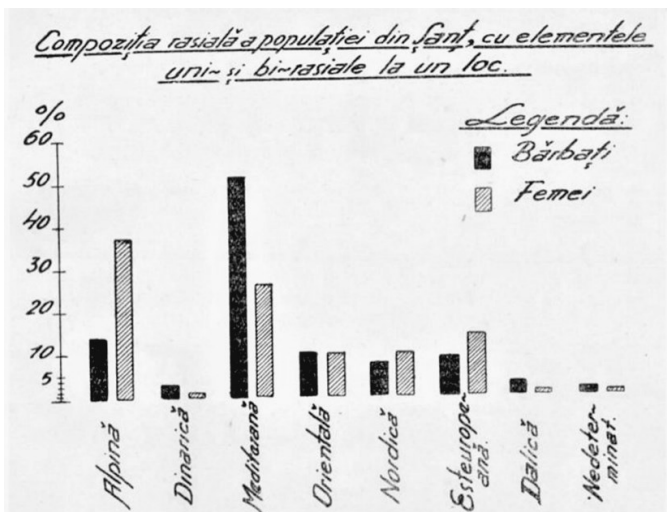 Compoziția rasială a populației din Șanț, cu elementele
uni~ și bi~rasiale la un loc.
%
60
50
40
30
20
10
5
Legendă:
Bărbați
Femei
Alpină
Dinarică
Mediterană
Orientală
Nordică
Esteurope~
ană.
Dalică
Nedeter~
minat.